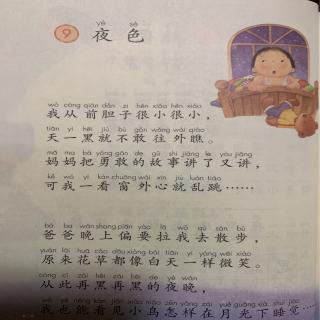 yè sè
9 夜色
wǒ cóng qián dǎn zi hěn xiǎo hěn xiǎo
我从前胆子很小很小，
tiān yì hēi jiù bù gǎn wǎng wài qiáo
天一黑就不敢往外瞧。
mā ma bǎ yǒng gǎn de gù shi jiǎng le yòu jiǎng
妈妈把勇敢的故事讲了又讲，
kě wǒ yí kàn chuāng wài xīn jiù luàn tiào
可我一看窗外心就乱跳……
bà ba wǎn shang piān yào lā wǒ qù sàn bù
爸爸晚上偏要拉我去散步，
yuán lái huā cǎo dōu xiàng bái tiān yí yàng wēi xiào
原来花草都像白天一样微笑。
cóng cǐ zài hēi zài hēi de yè wǎn
从此再黑再黑的夜晚，
wǒ yě néng kàn jiàn xiǎo niǎo zěn yàng zài yuè guāng xià shuì jiào
我也能看见小鸟怎样在月光下睡觉